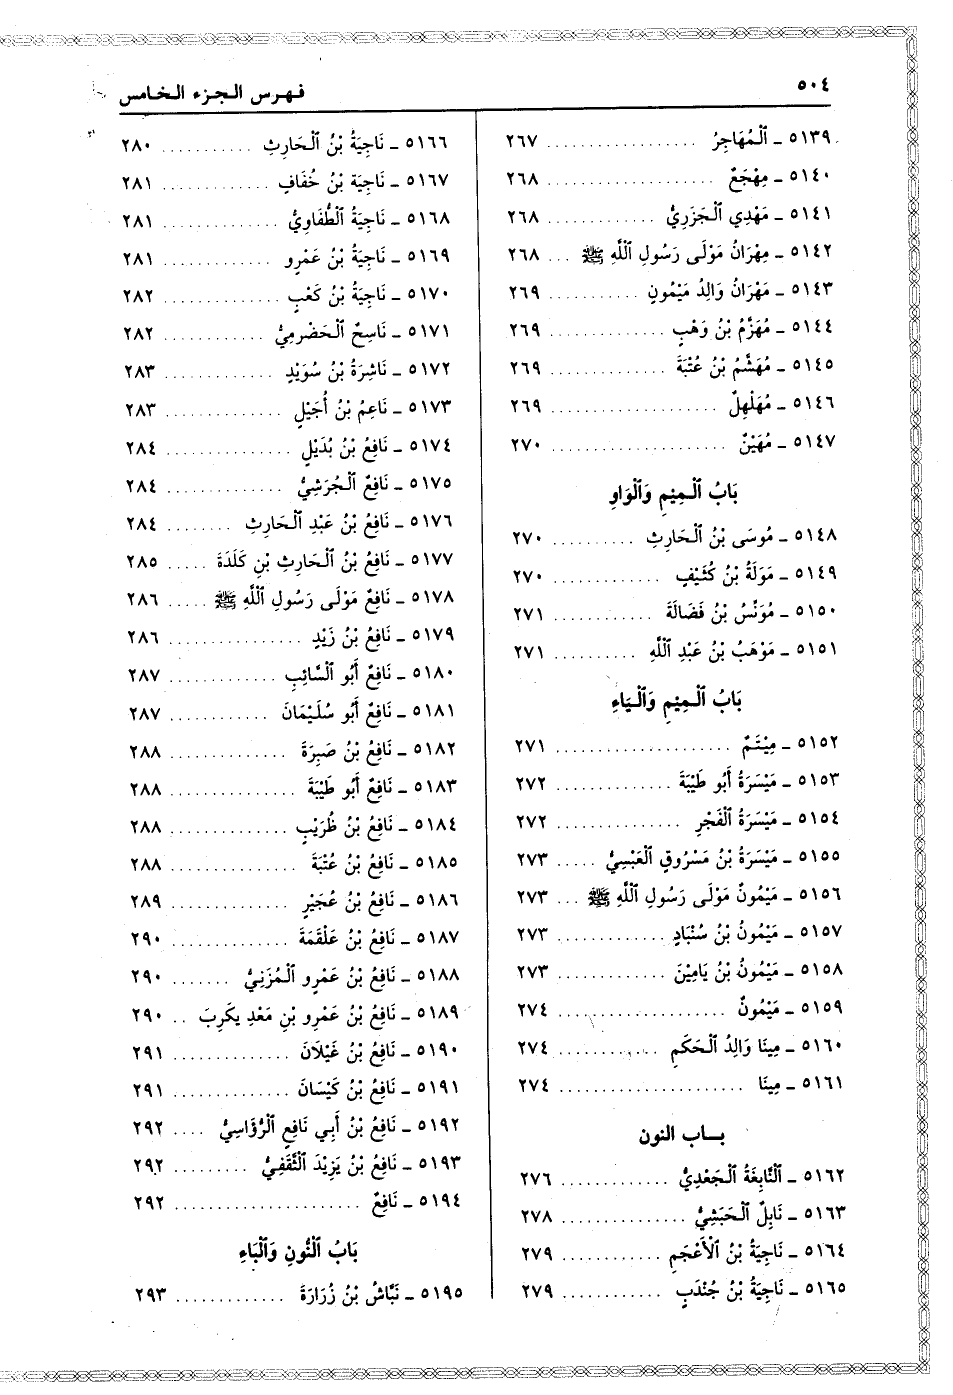 ٥٠٤
فهرس الجزء الخامس
٥١٣٩ ـ ٱلْمُهَاجِرُ .................. ٢٦٧
٥١٤٠ ـ مِهْجَعٌ .................. ٢٦٨
٥١٤١ ـ مَهْدِي ٱلْجَزَرِيُّ ............ ٢٦٨
٥١٤٢ ـ مِهْرَانُ مَوْلَى رَسُولِ ٱللَّهِ ﷺ ... ٢٦٨
٥١٤٣ ـ مَهْرَانُ وَالِدُ مَيْمُونٍ .......... ٢٦٩
٥١٤٤ ـ مُهَزَّمُ بْنُ وَهْبٍ ............ ٢٦٩
٥١٤٥ ـ مُهَشَّمُ بْنُ عُتْبَةَ ............ ٢٦٩
٥١٤٦ ـ مُهَلْهِلٌ .................. ٢٦٩
٥١٤٧ ـ مُهَيْنٌ .................. ٢٧٠
بَابُ ٱلْمِيْمِ وَٱلْوَاوِ
٥١٤٨ ـ مُوسَى بْنُ ٱلْحَارِثِ .......... ٢٧٠
٥١٤٩ ـ مَوَلَةُ بْنُ كُثَيْفٍ ............ ٢٧٠
٥١٥٠ ـ مُوَنِّسُ بْنُ فَضَالَةَ ............ ٢٧١
٥١٥١ ـ مَوْهَبُ بْنُ عَبْدِ ٱللَّهِ .......... ٢٧١
بَابُ ٱلْمِيْمِ وَٱلْيَاءِ
٥١٥٢ ـ مِيْتَمٌ .................. ٢٧١
٥١٥٣ ـ مَيْسَرَةُ أَبُو طَيْبَةَ ............ ٢٧٢
٥١٥٤ ـ مَيْسَرَةُ ٱلْفَجْرِ ............ ٢٧٢
٥١٥٥ ـ مَيْسَرَةُ بْنُ مَسْرُوقٍ ٱلْعَبْسِيُّ ..... ٢٧٣
٥١٥٦ ـ مَيْمُونُ مَوْلَى رَسُولِ ٱللَّهِ ﷺ ... ٢٧٣
٥١٥٧ ـ مَيْمُونُ بْنُ سُنْبَادٍ ............ ٢٧٣
٥١٥٨ ـ مَيْمُونُ بْنُ يَامِيْنَ ............ ٢٧٣
٥١٥٩ ـ مَيْمُونٌ .................. ٢٧٤
٥١٦٠ ـ مِينَا وَالِدُ ٱلْحَكَمِ ............ ٢٧٤
٥١٦١ ـ مِينَا .................. ٢٧٤
بــاب النون
٥١٦٢ ـ ٱلنَّابِغَةُ ٱلْجَعْدِيُّ ............ ٢٧٦
٥١٦٣ ـ نَابِلٌ ٱلْحَبَشِيُّ ............ ٢٧٨
٥١٦٤ ـ نَاجِيَةُ بْنُ ٱلْأَعْجَمِ .......... ٢٧٩
٥١٦٥ ـ نَاجِيَةُ بْنُ جُنْدَبٍ .......... ٢٧٩
٥١٦٦ ـ نَاجِيَةُ بْنُ ٱلْحَارِثِ ........... ٢٨٠
٥١٦٧ ـ نَاجِيَة بْنُ خُفَافٍ ............ ٢٨١
٥١٦٨ ـ نَاجِيَةُ ٱلْطُّفَاوِيُّ ............ ٢٨١
٥١٦٩ ـ نَاجِيَةُ بْنُ عَمْرٍو ............ ٢٨١
٥١٧٠ ـ نَاجِيَةُ بْنُ كَعْبٍ ............ ٢٨٢
٥١٧١ ـ نَاسِحٌ ٱلْحَضْرمِيُّ ............ ٢٨٢
٥١٧٢ ـ نَاشِرَةُ بْنُ سُوَيْدٍ ............ ٢٨٣
٥١٧٣ ـ نَاعِمُ بْنُ أُجَيْلٍ ............ ٢٨٣
٥١٧٤ ـ نَافِعُ بْنُ بُدَيْلٍ .............. ٢٨٤
٥١٧٥ ـ نَافِعٌ ٱلْجُرَشِيُّ ............ ٢٨٤
٥١٧٦ ـ نَافِعُ بْنُ عَبْدِ ٱلْحَارِثِ ........ ٢٨٤
٥١٧٧ ـ نَافِعُ بْنُ ٱلْحَارِثِ بْنِ كَلَدَةَ ..... ٢٨٥
٥١٧٨ ـ نَافِعٌ مَوْلَى رَسُولِ ٱللَّهِ ﷺ ..... ٢٨٦
٥١٧٩ ـ نَافِعُ بْنُ زَيْدٍ .............. ٢٨٦
٥١٨٠ ـ نَافِعٌ أَبُو ٱلسَّائِبِ ............ ٢٨٧
٥١٨١ ـ نَافِعٌ أَبُو سُلَيْمَانَ ............ ٢٨٧
٥١٨٢ ـ نَافِعُ بْنُ صَبِرَةَ ............ ٢٨٨
٥١٨٣ ـ نَافِعٌ أَبُو طَيْبَةَ .............. ٢٨٨
٥١٨٤ ـ نَافِعُ بْنُ ظُرَيْبٍ ............ ٢٨٨
٥١٨٥ ـ نَافِعُ بْنُ عُتْبَةَ .............. ٢٨٨
٥١٨٦ ـ نَافِعُ بْنُ عُجَيْرٍ ............ ٢٨٩
٥١٨٧ ـ نَافِعُ بْنُ عَلْقَمَةَ ............ ٢٩٠
٥١٨٨ ـ نَافِعُ بْنُ عَمْرٍو ٱلْمُزَنِيُّ ....... ٢٩٠
٥١٨٩ ـ نَافِعُ بْنُ عَمْرِو بْنِ مَعْدِ يكَرِبَ .. ٢٩٠
٥١٩٠ ـ نَافِعُ بْنُ غَيْلَانَ ............ ٢٩١
٥١٩١ ـ نَافِعُ بْنُ كَيْسَانَ ............ ٢٩١
٥١٩٢ ـ نَافِعُ بْنُ أَبِي نَافِعٍ ٱلْرُؤَاسِيُّ .... ٢٩٢
٥١٩٣ ـ نَافِعُ بْنُ يَزِيْدَ ٱلْثَّقَفِيُّ ......... ٢٩٢
٥١٩٤ ـ نَافِعٌ .................. ٢٩٢
بَابُ ٱلْنُّونِ وَٱلْبَاءِ
٥١٩٥ ـ نَبَّاشُ بْنُ زُرَارَةَ ............ ٢٩٣